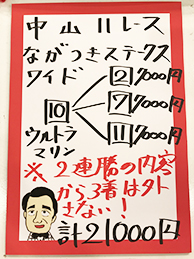 中山11レース
ながつきステークス
ワイド
②7000円
⑩
⑦7000円
⑪7000円
ウルトラ
マリン
※2連勝の内容
から3着はタト
さない!
計21000円